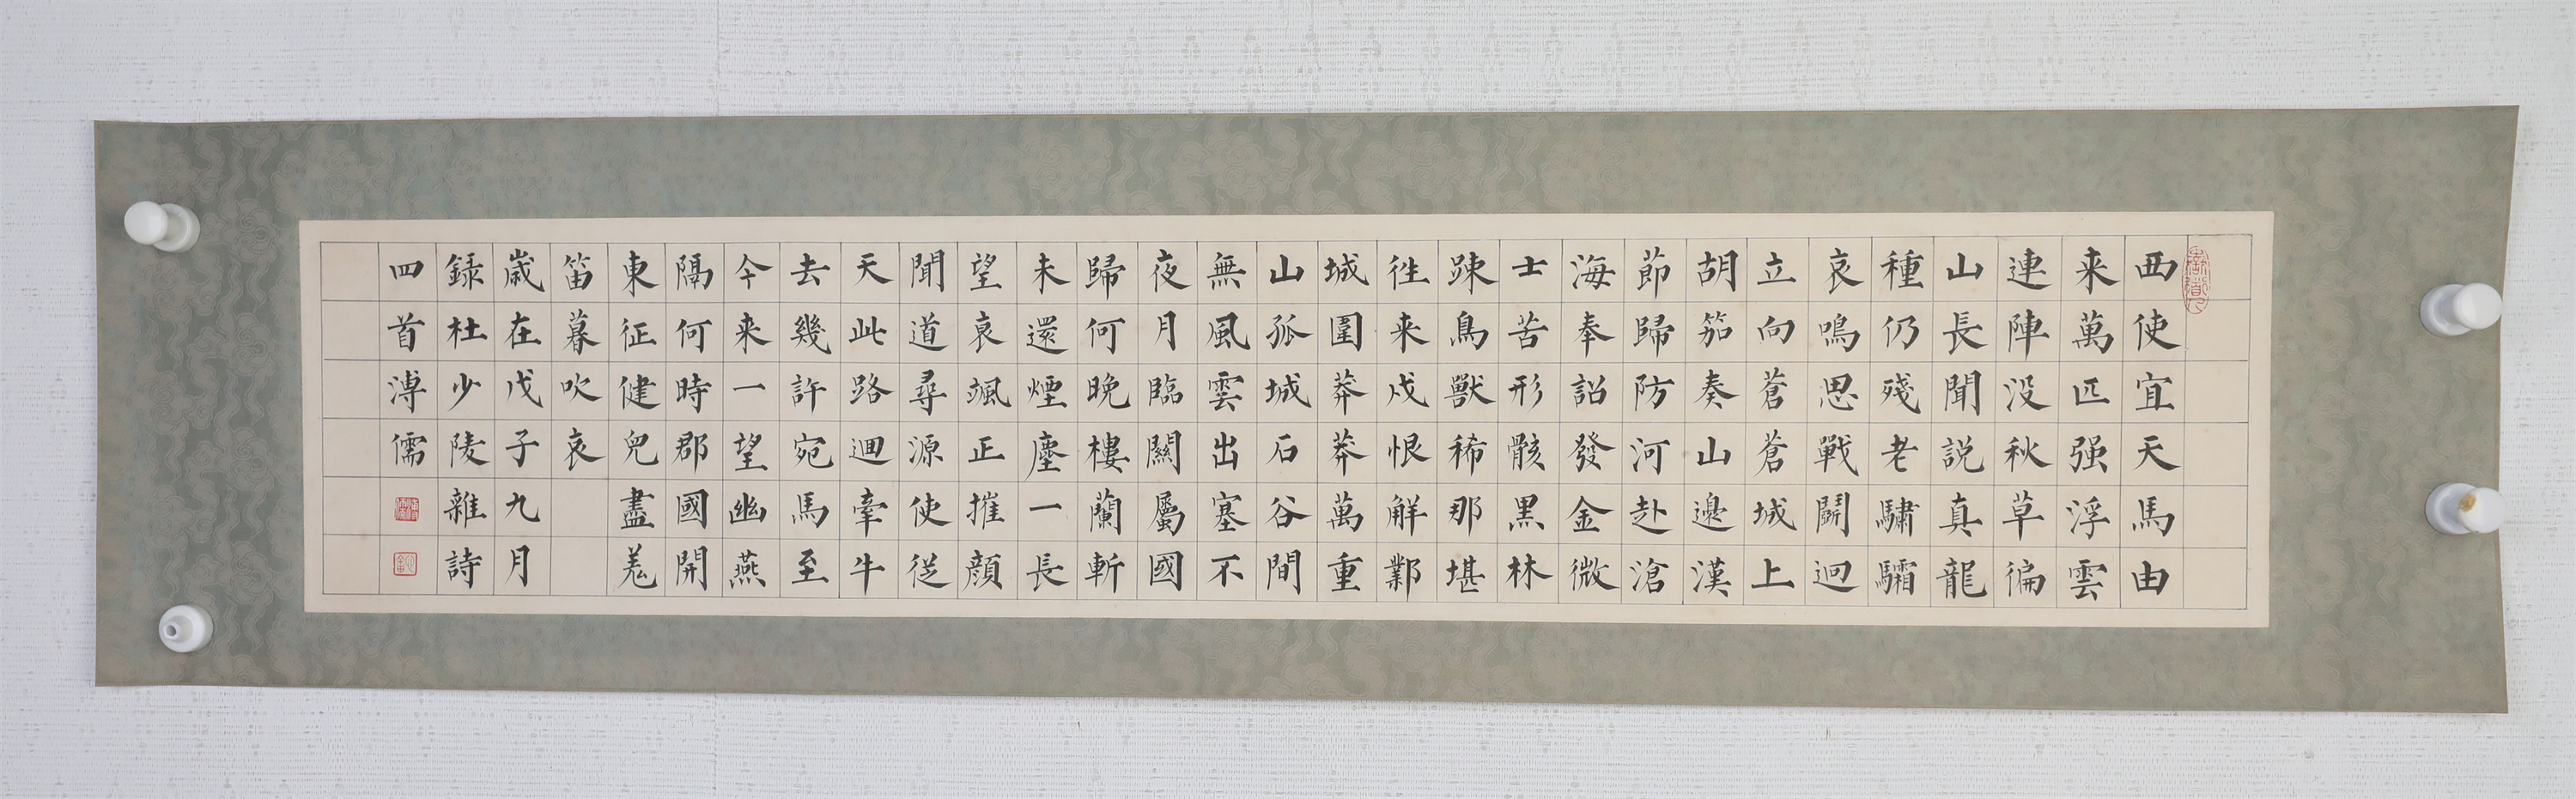 西使宜天馬由
来萬匹强浮雲
連陣没秋草徧
山長聞説真龍
種仍殘老驌驦
哀鳴思戰鬭迥
立向蒼蒼城上
胡笳奏山邉漢
節歸防河赴滄
海奉詔發金微
士苦形骸黒林
踈鳥獸稀那堪
徃来戍恨解鄴
城圍莽莽萬重
山孤城石谷間
無風雲出塞不
夜月臨關屬國
歸何晩樓蘭斬
未還煙塵一長
望哀颯正摧顔
聞道尋源使從
天此路迴牽牛
去幾許宛馬至
今来一望幽燕
隔何時郡國開
東征健兒盡羌
笛暮吹哀
歲在戊子九月
録杜少陵雜詩
四首溥儒